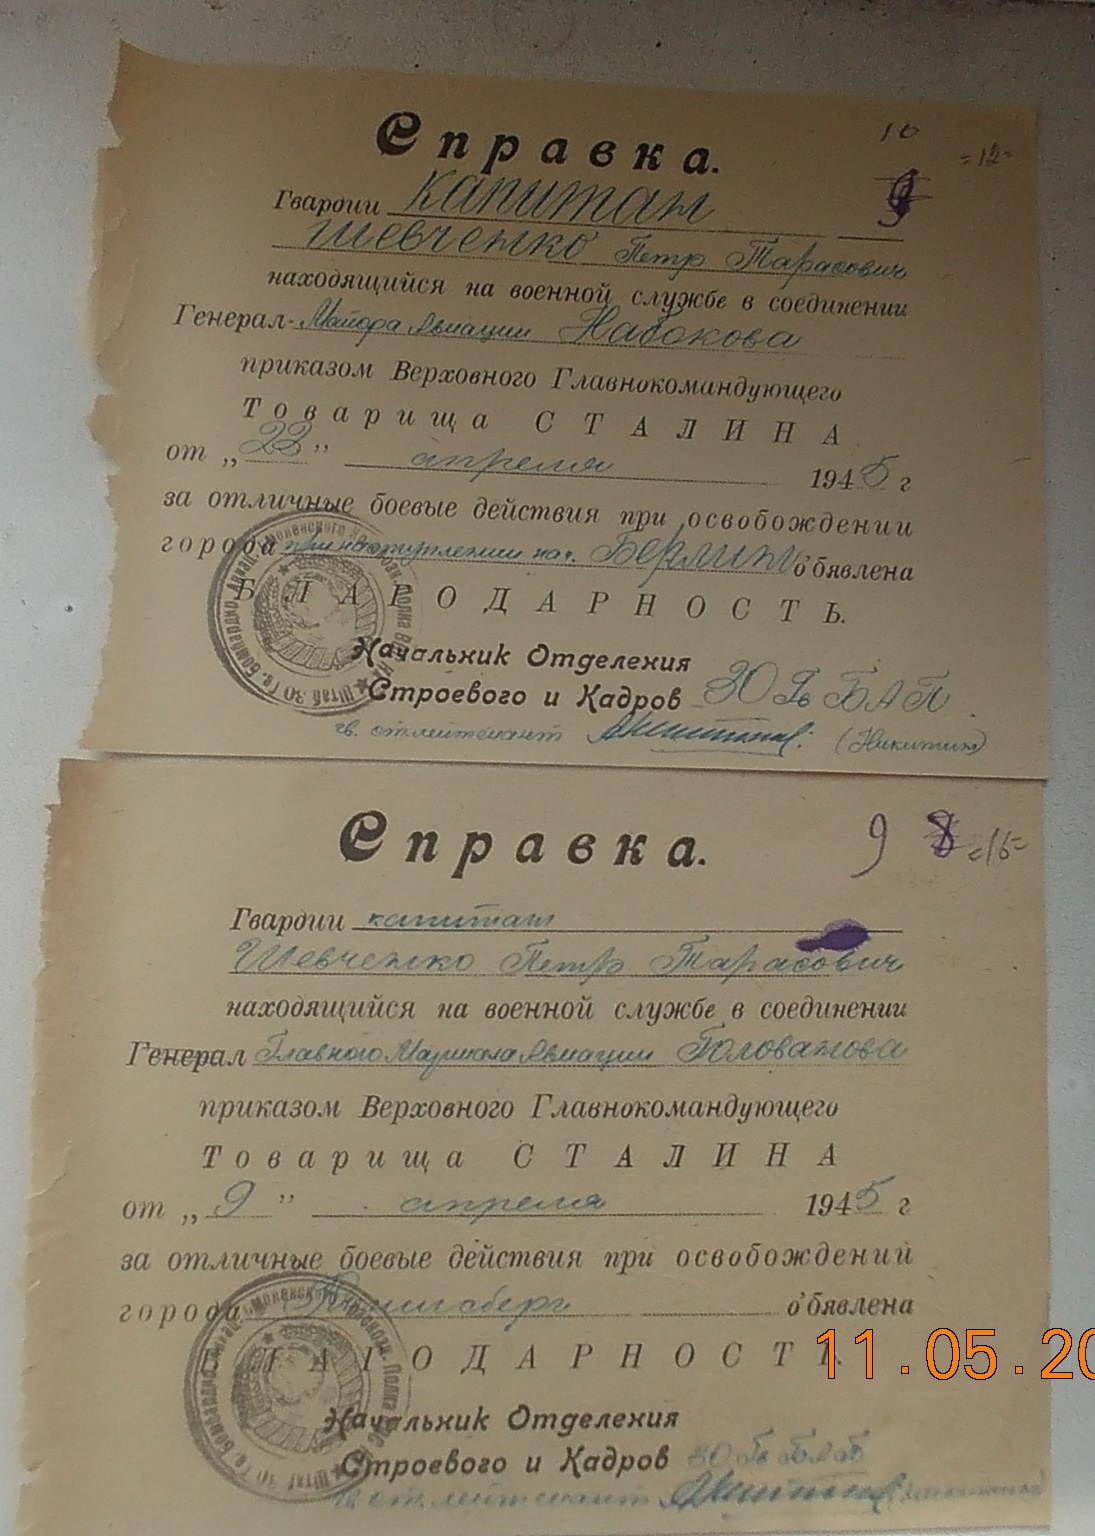 Справка.
10
=12=
9
Гвардии капитан
Шевченко Петр Тарасович
находящийся на военной службе в соединении
Генерал-Майора Авиации Набокова
приказом Верховного Главнокомандующего
Товарища СТАЛИНА
от „23” апреля 1945 г
за отличные боевые действия при освобождении
города при наступлении на г. Берлин о'бявлена
БЛАГОДАРНОСТЬ.
Начальник Отделения
Строевого и Кадров 30 Гв БАП
гв. ст. лейтенант (Никитин)
Штаб 30 Гв. Бомбардо. Авиац. Смоленского Краснозн. Полка
Справка.
9 8 =15=
Гвардии капитан
Шевченко Петр Тарасович
находящийся на военной службе в соединении
Генерал Главного Маршала Авиации Голованова
приказом Верховного Главнокомандующего
Товарища СТАЛИНА
от „9” апреля 1945 г
за отличные боевые действия при освобождений
города Кенигсберг о'бявлена
БЛАГОДАРНОСТЬ.
Начальник Отделения
Строевого и Кадров 30 Гв БАП
гв. ст. лейтенант
11.05.20